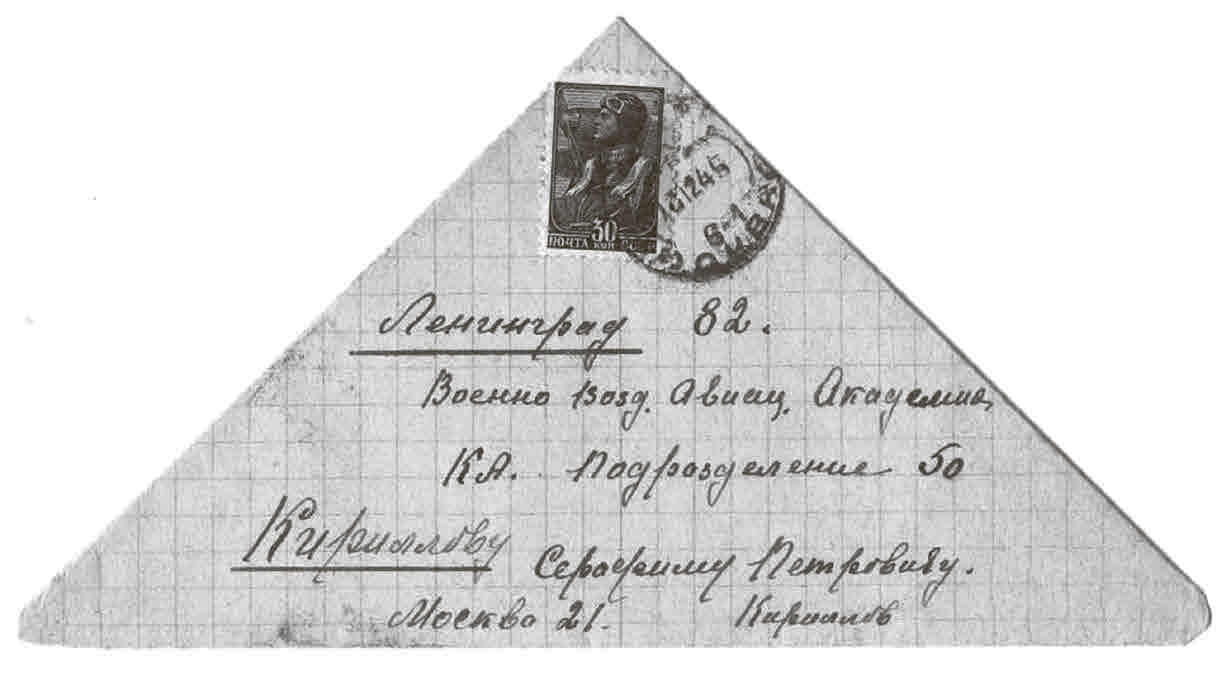 30
ПОЧТА КОП
6-1
МОСКВА
Ленинград 82.
Военно Возд. Авиац. Академия,
КА. Подразделение 50
Кириллову
Серафиму Петровичу.
Москва 21. Кириллов